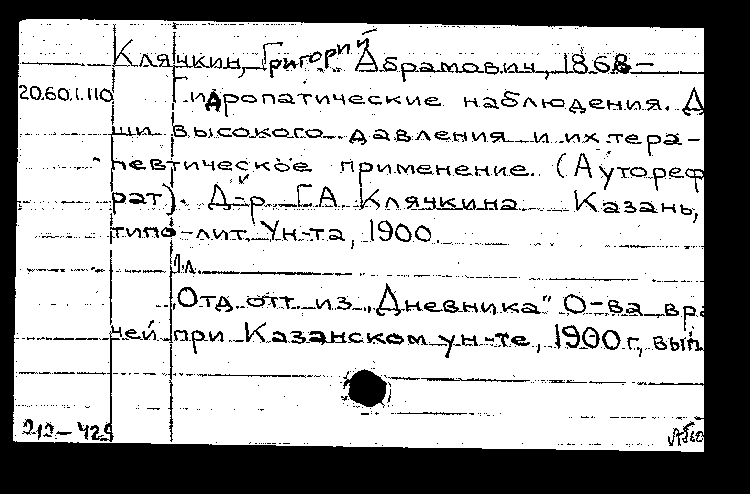 Клячкин, Григорий Абрамович, 1868-
20.60.1.110 Гидропатические наблюдения. Д
ши высокого давления и их тера-
певтическое применение. (Ауторефе
рат). Д-р Г.А Клячкина Казань,
типо-лит. Ун-та, 1900.
1 л.
"Отд. отт. из "Дневника" О-ва вра
чей при Казанском ун-те, 1900 г., вып.
212-429